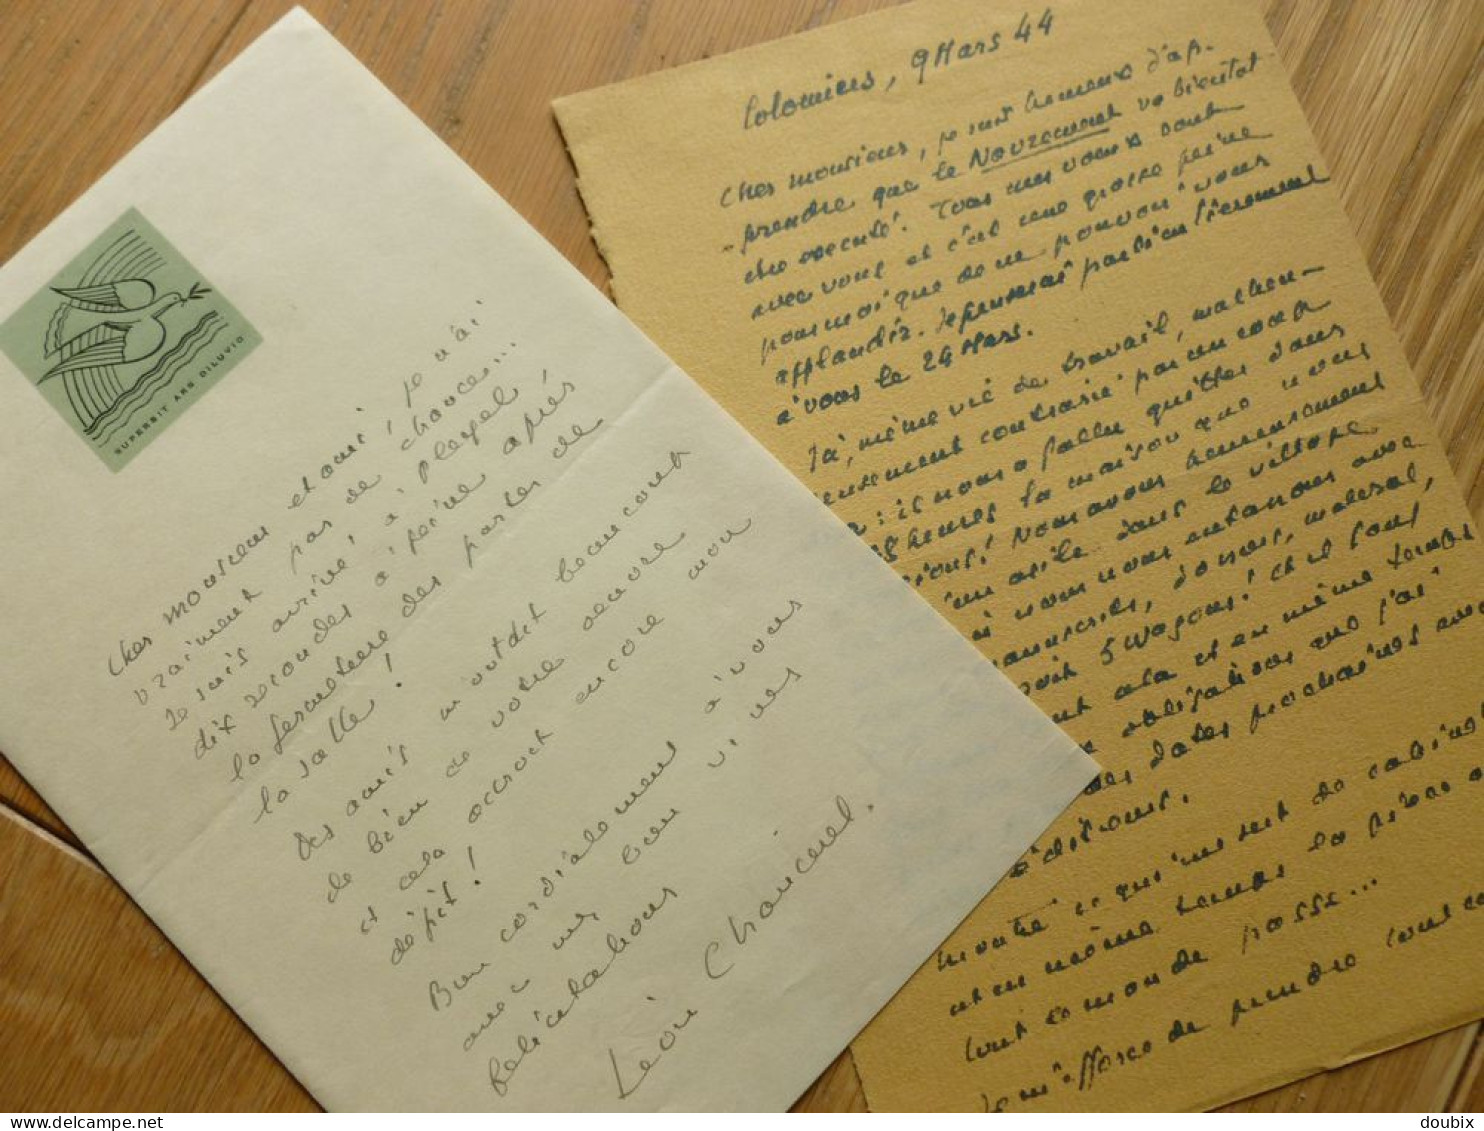 SUPERBIT ARS DILUVIO
Cher monsieur et ami, je n'ai
vraiment pas de chance...
Je suis arrivé, à Pleyel
dix secondes à peine après
la fermeture des portes de
la salle!
Des amis m'ont dit beaucoup
de bien de votre oeuvre
et cela accroit encore mon
dépit!
Bien cordialement à vous
avec mes bien vives
félicitations
Léon Chancerel.
Colomiers, 9 Mars 44
Cher monsieur, je suis heureux d'ap-
-prendre que le Navrement va bientot
être exécuté. Tous mes voeux sont
avec vous et c'est une grosse peine
pour moi que de ne pouvoir vous
applaudir. Je penserai particulièrement
à vous le 24 Mars.
Ici, même vie de travail, malheu-
reusement contrarié par un coup
: il nous a fallu quitter dans
heures la maison que nous
ions! Nous avons heureusement
un asile dans le village
où nous nous entassons avec
manuscrits, dossiers, matériel,
soit 5 wagons! Et il faut
cela et en même temps
obligations que j'ai
des dates prochaines avec
éditeurs.
montre ce qu'un sert de cabinet
et en même temps la pièce
tout le monde passe...
Je m'efforce de prendre tout ce
doubix